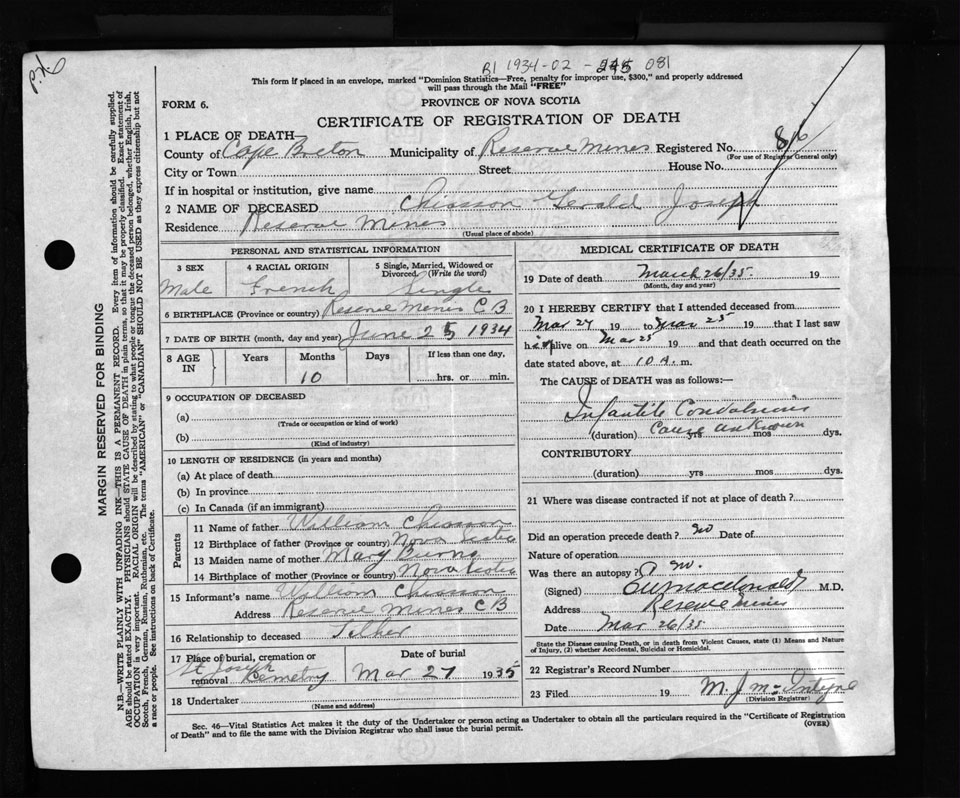 P.K.
R1 1934-02-245 081
This form if placed in an envelope, marked "Dominion Statistics—Free, penalty for improper use, $300," and properly addressed
will pass through the Mail "FREE"
FORM 6.
PROVINCE OF NOVA SCOTIA
CERTIFICATE OF REGISTRATION OF DEATH
816
1 PLACE OF DEATH
County of Cape Breton Municipality of Reserve Mines Registered No.
(For use of Registrar General only)
City or Town Street House No.
If in hospital or institution, give name
2 NAME OF DECEASED Chiasson Gerald Joseph
Residence Reserve Mines
(Usual place of abode)
MARGIN RESERVED FOR BINDING
N.B.—WRITE PLAINLY WITH UNFADING INK—THIS IS A PERMANENT RECORD. Every item of information should be carefully supplied.
AGE should be stated EXACTLY. PHYSICIANS should STATE CAUSE OF DEATH in plain terms, so that it may be properly classified. Exact statement of
OCCUPATION is very important. RACIAL ORIGIN will be described by stating to what people or tongue the deceased person belonged, whether English, Irish,
Scotch, French, German, Russian, Ruthenian, etc. The terms "AMERICAN" or "CANADIAN" SHOULD NOT BE USED as they express citizenship but not
a race or people. See instructions on back of Certificate.
PERSONAL AND STATISTICAL INFORMATION
3 SEX 4 RACIAL ORIGIN 5 Single, Married, Widowed or
Divorced. (Write the word)
Male French Single
6 BIRTHPLACE (Province or country) Reserve Mines C B
7 DATE OF BIRTH (month, day and year) June 25 1934
8 AGE IN Years Months Days If less than one day,
10 hrs. or min.
9 OCCUPATION OF DECEASED
(a)
(Trade or occupation or kind of work)
(b)
(Kind of industry)
10 LENGTH OF RESIDENCE (in years and months)
(a) At place of death
(b) In province
(c) In Canada (if an immigrant)
Parents
11 Name of father William Chiasson
12 Birthplace of father (Province or country) Nova Scotia
13 Maiden name of mother Mary Burns
14 Birthplace of mother (Province or country) Nova Scotia
15 Informant's name William Chiasson
Address Reserve Mines C B
16 Relationship to deceased Father
17 Place of burial, cremation or removal Date of burial
St Joseph Cemetery Mar 27 1935
18 Undertaker
(Name and address)
MEDICAL CERTIFICATE OF DEATH
19 Date of death March 26/35 19
(Month, day and year)
20 I HEREBY CERTIFY that I attended deceased from
Mar 24 19 to Mar 25 19 that I last saw
him alive on Mar 25 19 and that death occurred on the
date stated above, at 10 A. m.
The CAUSE of DEATH was as follows:—
Infantile Convulsions
Cause unknown
(duration) yrs mos dys.
CONTRIBUTORY
(duration) yrs mos dys.
21 Where was disease contracted if not at place of death?
Did an operation precede death? no Date of
Nature of operation
Was there an autopsy? no.
(Signed) Macdonald M.D.
Address Reserve Mines
Date Mar 26/35
State the Disease causing Death, or in death from Violent Causes, state (1) Means and Nature
of Injury, (2) whether Accidental, Suicidal or Homicidal.
22 Registrar's Record Number
23 Filed 19 M. J. McIntyre
(Division Registrar)
Sec. 46—Vital Statistics Act makes it the duty of the Undertaker or person acting as Undertaker to obtain all the particulars required in the "Certificate of Registration
of Death" and to file the same with the Division Registrar who shall issue the burial permit.
(OVER)